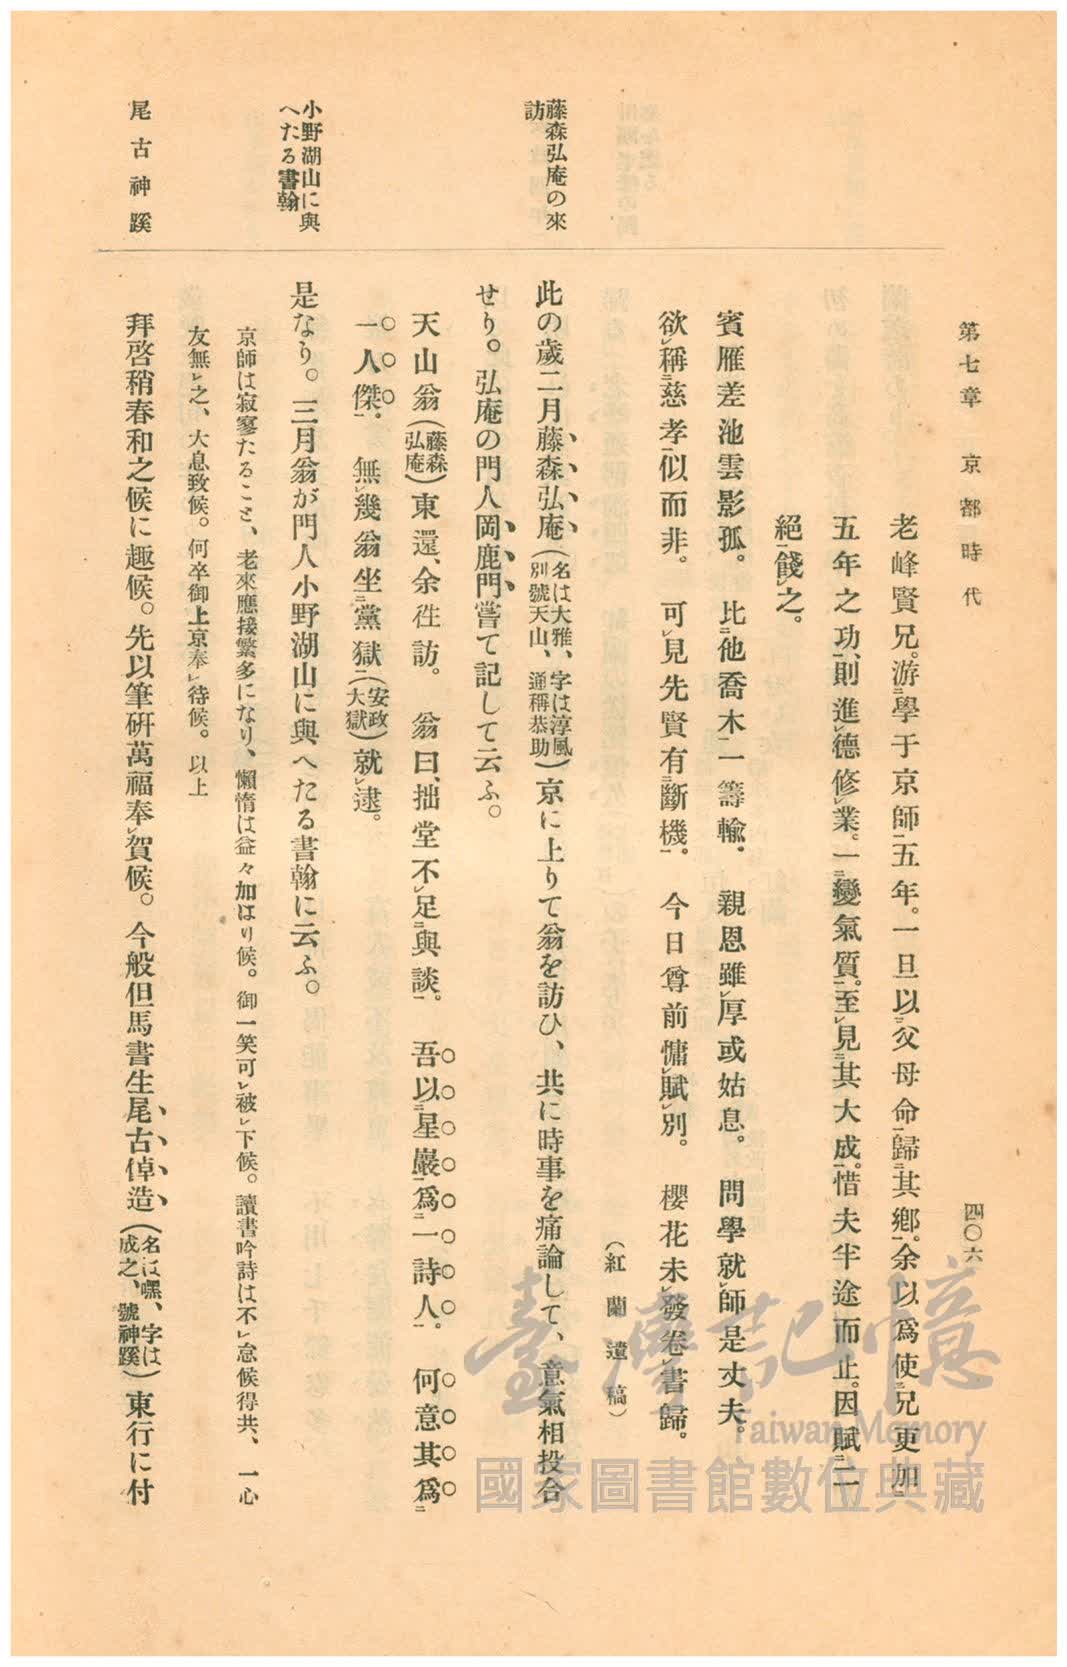 第七章 京都時代
四〇六
老峰賢兄。游㆓學于京師㆒五年。一旦以㆓父母命㆒歸㆓其鄕㆒。余以爲使㆓兄更加㆓
五年之功㆒、則進㆑德修㆑業。一㆓變氣質㆒。至㆑見㆓其大成㆒。惜夫半途而止。因賦㆓二
絕㆒餞㆑之。
賓雁差池雲影孤。 比㆓他喬木㆒一籌輸。 親恩雖㆑厚或姑息。 問學就㆑師是丈夫。
欲㆑稱㆓慈孝㆒似而非。 可㆑見先賢有㆓斷機㆒。 今日尊前慵㆑賦㆑別。 櫻花未㆑發卷㆑書歸。
（紅蘭遺稿）
藤森弘庵の來
訪
此の歲二月藤森弘庵（名は大雅、字は淳風、別號天山、通稱恭助）京に上りて翁を訪ひ、共に時事を痛論して、意氣相投合
せり。弘庵の門人岡鹿門嘗て記して云ふ。
天山翁（藤森弘庵）東還、余徃訪。 翁曰、拙堂不㆑足㆓與談㆒。 吾以㆓星巖㆒爲㆓一詩人㆒。 何意其爲㆓
一人傑㆒。 無㆑幾翁坐㆓黨獄㆒（安政大獄）就㆑逮。
小野湖山に與
へたる書翰
是なり。三月翁が門人小野湖山に與へたる書翰に云ふ。
京師は寂寥たること、老來應接繁多になり、懶惰は益々加はり候。御一笑可㆑被㆑下候。讀書吟詩は不㆑怠候得共、一心
友無㆑之、大息致候。何卒御上京奉㆑待候。以上
尾古神蹊
拜啓稍春和之候に趣候。先以筆硏萬福奉㆑賀候。今般但馬書生尾古倬造（名は嘿、字は成之、號神蹊）東行に付
臺灣記憶
Taiwan Memory
國家圖書館數位典藏